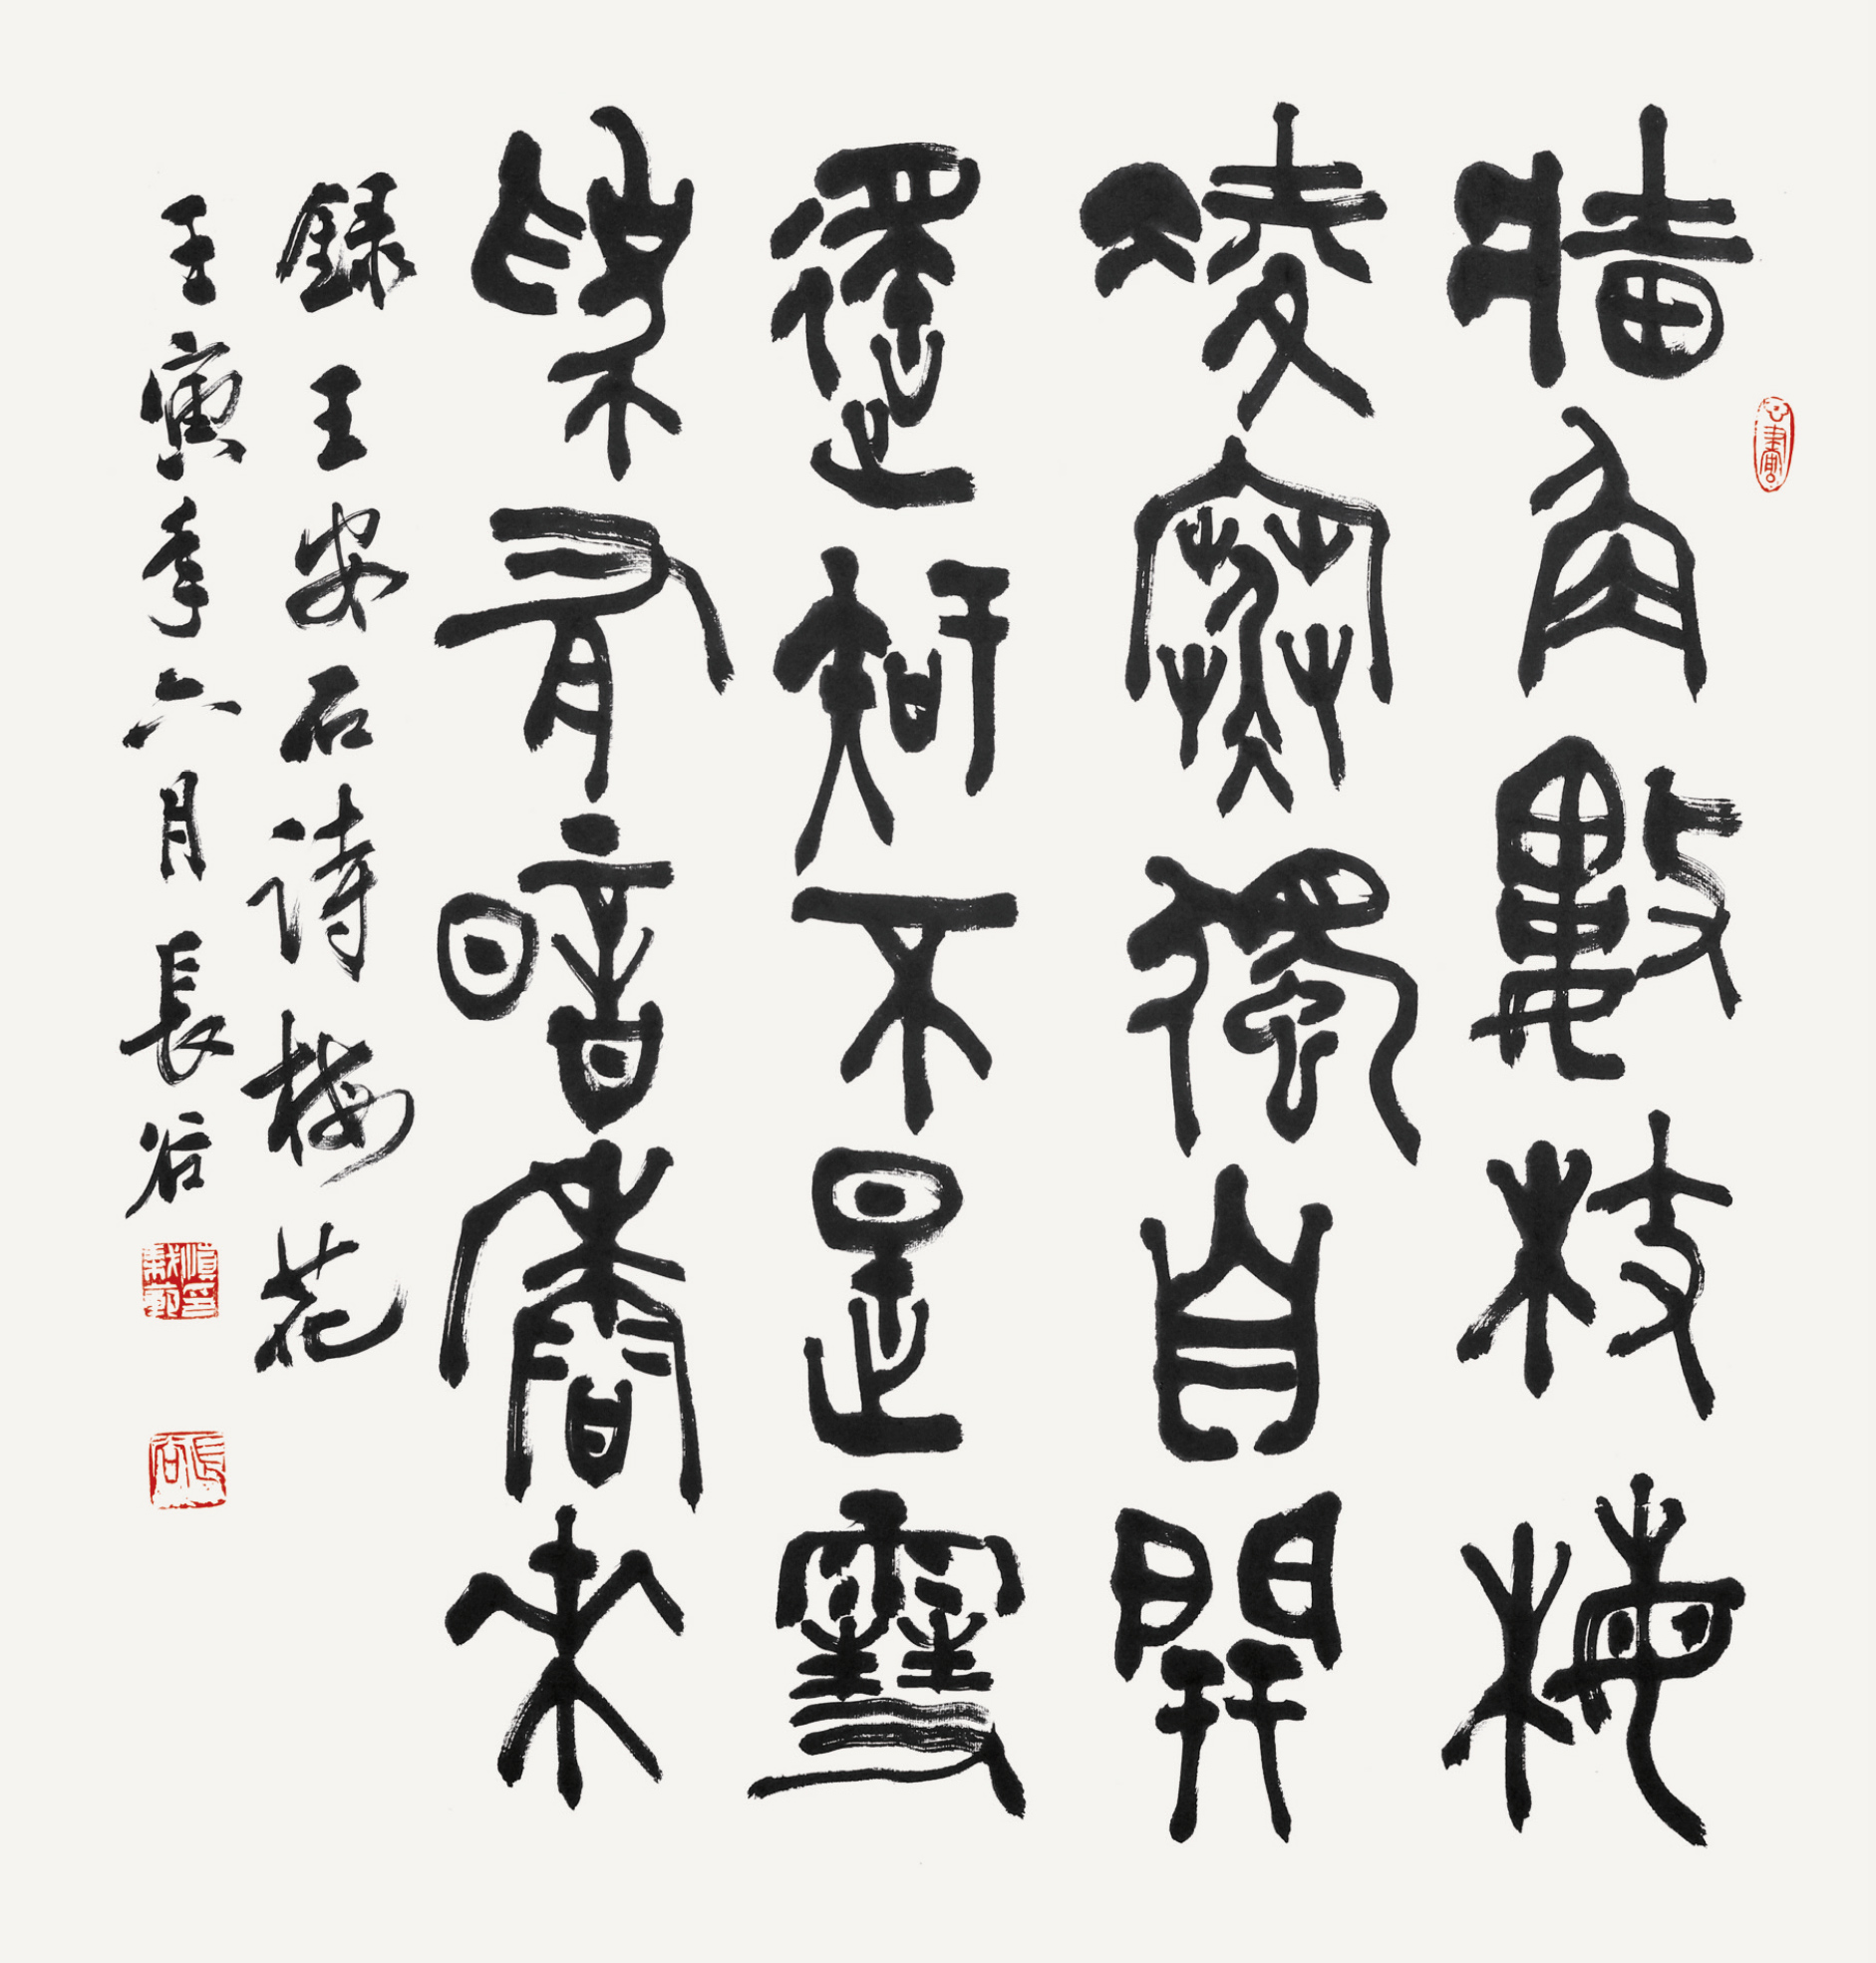 牆角數枝梅
凌寒獨自開
遙知不是雪
為有暗香來
録王安石詩梅花
壬寅年六月長谷
長谷